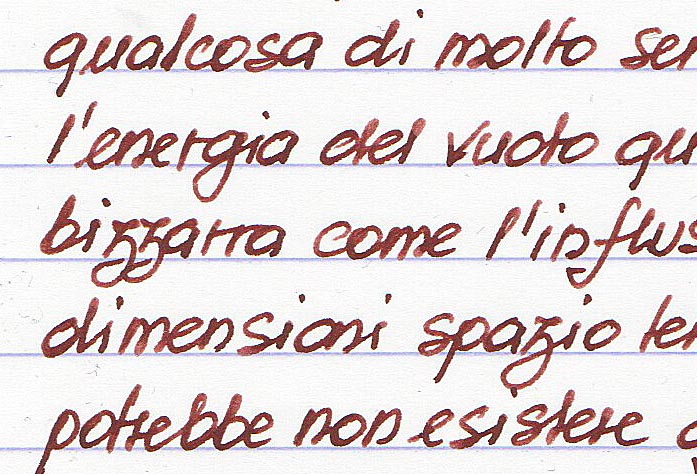 qualcosa di molto se
l'energia del vuoto qu
bizzarra come l'influs
dimensioni spazio te
potrebbe non esistere